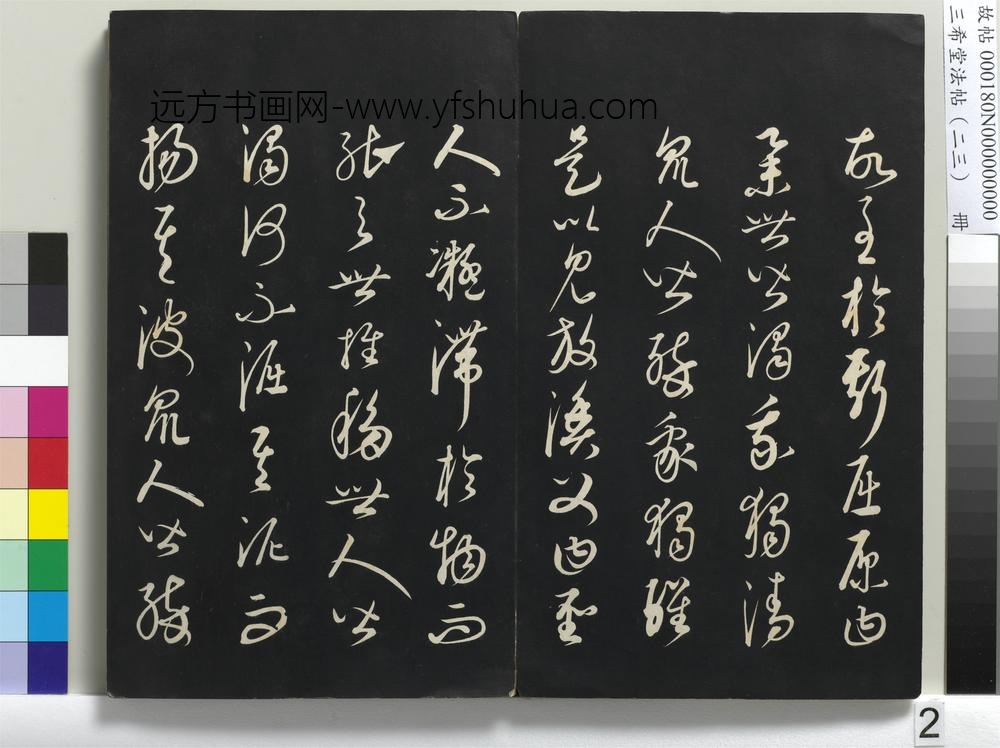 故至於斯屈原曰
举世皆濁我獨清
衆人皆醉我獨醒
是以見放漁父曰聖
人不凝滯於物而
能與世推移世人皆
濁何不淈其泥而
揚其波衆人皆醉
远方书画网-www.yfshuhua.com
故帖 000180N000000000
三希堂法帖（二三） 冊
2